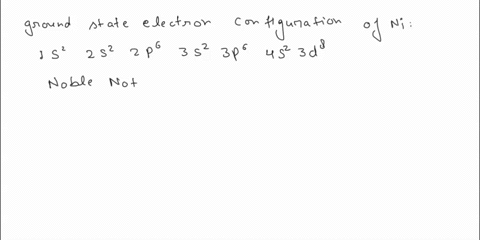 ground state electron configuration of Ni:
1s² 2s² 2p⁶ 3s² 3p⁶ 4s² 3d⁸
Noble Not